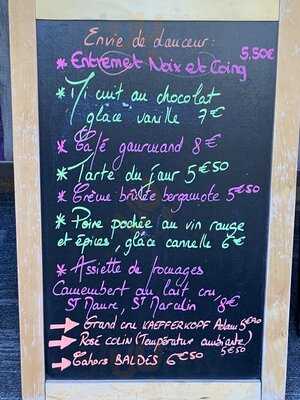 Envie de douceur :
* Entremet Noix et Coing 5.50€
* Mi cuit au chocolat
glace vanille 7€
* Café gourmand 8€
* Tarte du jour 5€50
* Crème brûlée bergamote 5€50
* Poire pochée au vin rouge
et épices, glace cannelle 6€
* Assiette de fromages
Camembert au lait cru,
St Maure, St Marcelin 8€
→ Grand cru KAEFFERKOPF Adam 5€90
→ Rosé COLIN (Température ambiante)
5€50
→ Cahors BALDÈS 6€50